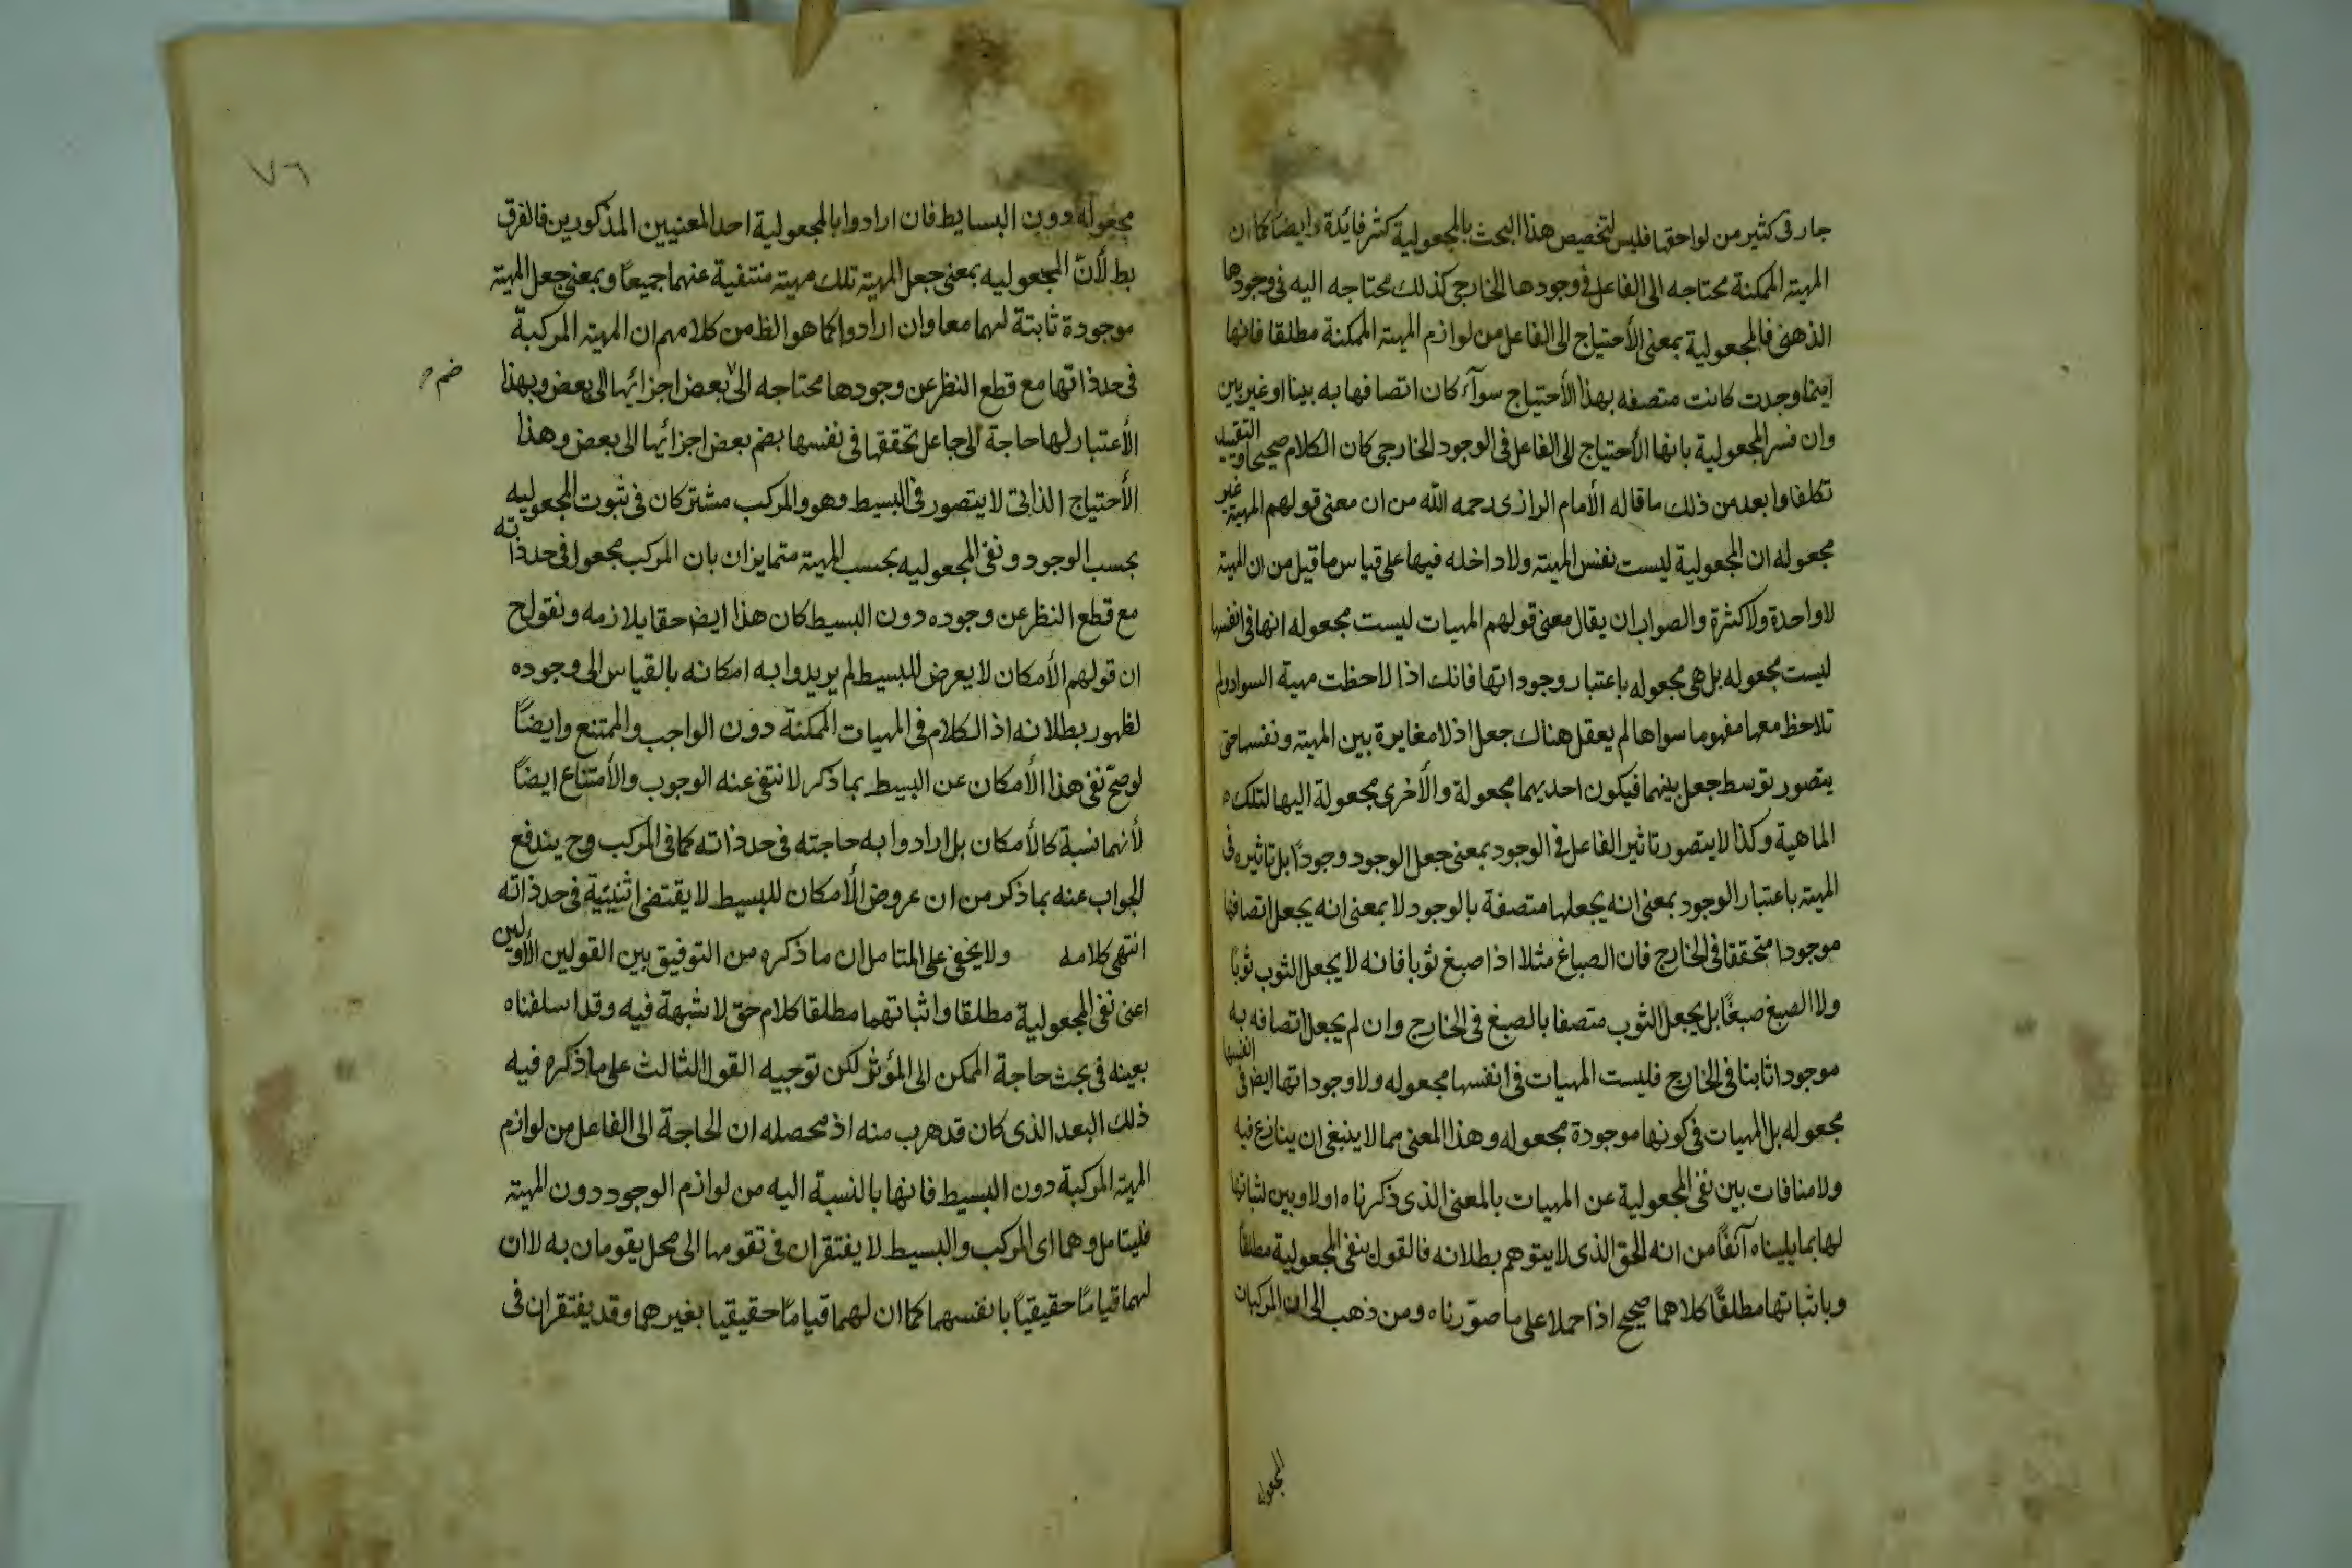 جار فى كثير من لواحقها فليس لتخصيص هذا البحث بالمجعولية كثر فائدة وايضا كما ان
المهية الممكنة محتاجه الى الفاعل فى وجودها الخارجى كذلك محتاجه اليه فى وجودها
الذهنى فالمجعولية بمعنى الأحتياج الى الفاعل من لوازم المهية الممكنة مطلقا فانها
اينما وجدت كانت متصفه بهذا الأحتياج سوآء كان اتصافها به بينا او غير بين
وان فسر المجعولية بانها الأحتياج الى الفاعل فى الوجود الخارجى كان الكلام صحيحا والتقييد
تكلفا وابعد من ذلك ما قاله الأمام الرازى رحمه الله من ان معنى قولهم المهية غير
مجعوله ان المجعولية ليست نفس المهية ولا داخله فيها على قياس ما قيل من ان المهية
لا واحدة ولا كثرة والصواب ان يقال معنى قولهم المهيات ليست مجعوله انها فى انفسها
ليست مجعوله بل هى مجعوله باعتبار وجوداتها فانك اذا لاحظت مهية السواد ولم
تلاحظ معها مفهوما سواها لم يعقل هناك جعل اذ لا مغايرة بين المهية ونفسها حتى
يتصور توسط جعل بينهما فيكون احديهما مجعولة والأخرى مجعولة اليها لتلك
الماهية وكذا لا يتصور تاثير الفاعل فى الوجود بمعنى جعل الوجود وجودًا بل تاثيره فى
المهية باعتبار الوجود بمعنى انه يجعلها متصفة بالوجود لا بمعنى انه يجعل اتصافها
موجودا متحققا فى الخارج فان الصباغ مثلا اذا صبغ ثوبا فانه لا يجعل الثوب ثوبًا
ولا الصبغ صبغًا بل يجعل الثوب متصفا بالصبغ فى الخارج وان لم يجعل اتصافه به
موجودا ثابتا فى الخارج فليست المهيات فى انفسها مجعوله ولا وجوداتها ايض فى انفسها
مجعوله بل المهيات فى كونها موجودة مجعوله وهذا المعنى مما لا ينبغى ان ينازع فيه
ولا منافات بين نفى المجعولية عن المهيات بالمعنى الذى ذكرناه اولا وبين اثباتها
لها بما بيناه آنفًا من انه الحق الذى لا يتوهم بطلانه فالقول بنفى المجعولية مطلقًا
وباثباتها مطلقًا كلاهما صحيح اذا حملا على ما صوّرناه ومن ذهب الى ان المركبات
المجعوله
٧٦
مجعوله دون البسايط فان ارادوا بالمجعولية احد المعنيين المذكورين فالفرق
بط لأنّ المجعوليه بمعنى جعل المهية تلك مهية منتفية عنهما جميعًا وبمعنى جعل المهية
موجودة ثابتة لهما معا وان ارادوا كما هو الظ من كلامهم ان المهية المركبة
فى حد ذاتها مع قطع النظر عن وجودها محتاجه الى بعض اجزائها الى بعض وبهذا
ضم
الأعتبار لها حاجة الى جاعل تحققها فى نفسها بضم بعض اجزائها الى بعض وهذا
الأحتياج الذاتى لا يتصور فى البسيط وهو والمركب مشتركان فى ثبوت المجعوليه
بحسب الوجود ونفى المجعوليه بحسب المهية متمايزان بان المركب مجعول فى حد ذاته
مع قطع النظر عن وجوده دون البسيط كان هذا ايض حقا يلازمه ونقول ح
ان قولهم الأمكان لا يعرض للبسيط لم يريدوا به امكانه بالقياس الى وجوده
لظهور بطلانه اذ الكلام فى المهيات الممكنة دون الواجب والممتنع وايضًا
لو صحّ نفى هذا الأمكان عن البسيط بما ذكر لانتفى عنه الوجوب والأمتناع ايضًا
لأنهما نسبة كالأمكان بل ارادوا به حاجته فى حد ذاته كما فى المركب وح يندفع
الجواب عنه بما ذكر من ان عروض الأمكان للبسيط لا يقتضى اثنينية فى حد ذاته
انتهى كلامه ولا يخفى على المتامل ان ما ذكره من التوفيق بين القولين الأولين
اعنى نفى المجعولية مطلقا واثباتهما مطلقا كلام حق لا شبهة فيه وقد اسلفناه
بعينه فى بحث حاجة الممكن الى المؤثر لكن توجيه القول الثالث على ما ذكره فيه
ذلك البعد الذى كان قد هرب منه اذ محصله ان الحاجة الى الفاعل من لوازم
المهية المركبة دون البسيط فانها بالنسبة اليه من لوازم الوجود دون المهية
فليتامل وهما اى المركب والبسيط لا يفتقران فى تقومها الى محل يقومان به لا ان
لهما قيامًا حقيقيًا بانفسهما كما ان لهما قيامًا حقيقيا بغيرهما وقد يفتقران فى